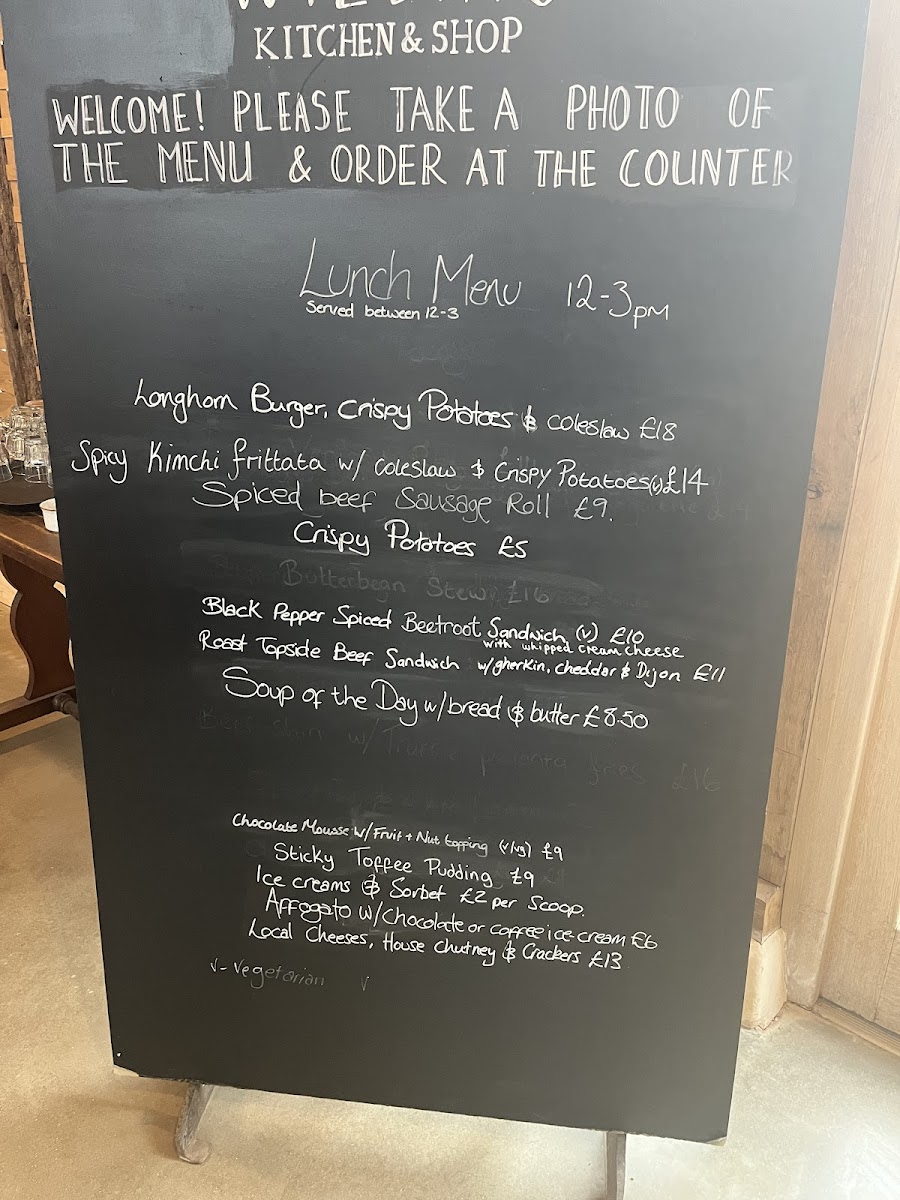 KITCHEN & SHOP
WELCOME! PLEASE TAKE A PHOTO OF
THE MENU & ORDER AT THE COUNTER
Lunch Menu 12-3pm
Served between 12-3
Longhorn Burger, Crispy Potatoes & coleslaw £18
Spicy Kimchi frittata w/ coleslaw & Crispy Potatoes (v) £14
Spiced beef Sausage Roll £9.
Crispy Potatoes £5
Butterbean Stew £16
Black Pepper Spiced Beetroot Sandwich (v) £10
with whipped cream cheese
Roast Topside Beef Sandwich w/gherkin, cheddar & Dijon £11
Soup of the Day w/bread & butter £8.50
Beef w/ polenta fries £16
Chocolate Mousse w/ Fruit + Nut topping (v/vg) £9
Sticky Toffee Pudding £9
Ice creams & Sorbet £2 per Scoop.
Affogato w/chocolate or coffee ice-cream £6
Local Cheeses, House Chutney & Crackers £13
v - vegetarian v